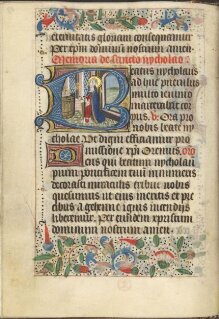 eternitatis gloriam consequamur
Per xpm dominū nostrum amen.
Memoria de sancto nycholao
Beatus nycholaus
pus. v. Ora pro
nobis beate ny
cholae Ut digni efficiamur pro
missione xpi Oremus. oro
Deus qui beatum nycholaū
pium pontificem tuū innumeris
decorasti miraculis tribue nobis
quesumus ut eius meritis et pre
cibus a gehenne ignis incendijs
liberemur. Per eundem xpristum
dominum nostrum amen.